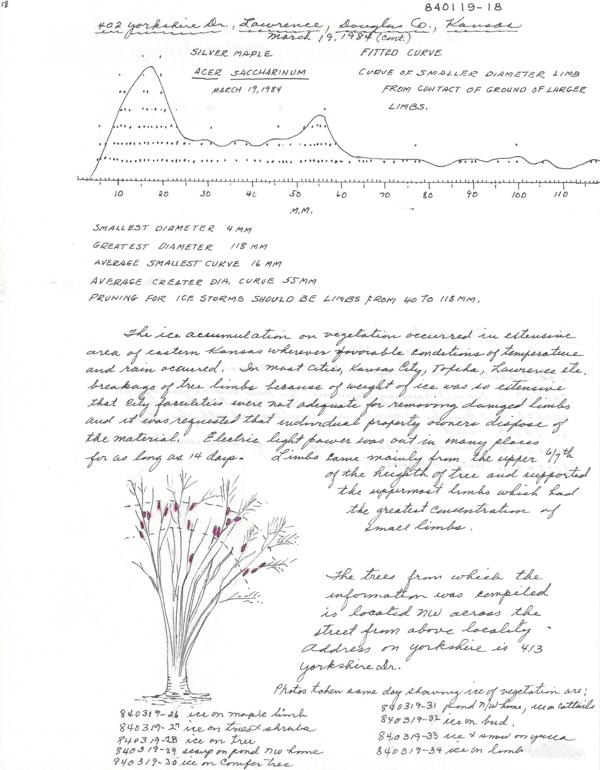 18
840119-18
402 Yorkshire Dr., Lawrence, Douglas Co., Kansas
March 19, 1984 (Cont.)
SILVER MAPLE
ACER SACCHARINUM
MARCH 19, 1984
FITTED CURVE
CURVE OF SMALLER DIAMETER LIMB
FROM CONTACT OF GROUND OF LARGER
LIMBS.
10 20 30 40 50 60 70 80 90 100 110
M.M.
SMALLEST DIAMETER 4 MM
GREATEST DIAMETER 118 MM
AVERAGE SMALLEST CURVE 16 MM
AVERAGE GREATER DIA. CURVE 55 MM
PRUNING FOR ICE STORMS SHOULD BE LIMBS FROM 40 TO 118 MM.
The ice accumulation on vegetation occurred in extensive
area of eastern Kansas wherever favorable conditions of temperature
and rain occured. In most cities, Kansas City, Topeka, Lawrence etc.
breakage of tree limbs because of weight of ice was so extensive
that City facilities were not adequate for removing damaged limbs
and it was requested that individual property owners dispose of
the material. Electric light power was out in many places
for as long as 14 days. Limbs came mainly from the upper 6/7th
of the heighth of tree and supported
the uppermost limbs which had
the greatest concentration of
small limbs.
The trees from which the
information was compiled
is located NW across the
street from above locality
Address on Yorkshire is 413
Yorkshire Dr.
Photos taken same day showing ice of vegetation are:
840319-26 ice on maple limb
840319-27 ice on trees & shrubs
840319-28 ice on tree
840319-29 on pond NW home
840319-30 ice on conifer tree
840319-31 pond N/W home, ice on cattails
840319-32 ice on bud.
840319-33 ice & snow on yucca
840319-34 ice on limb